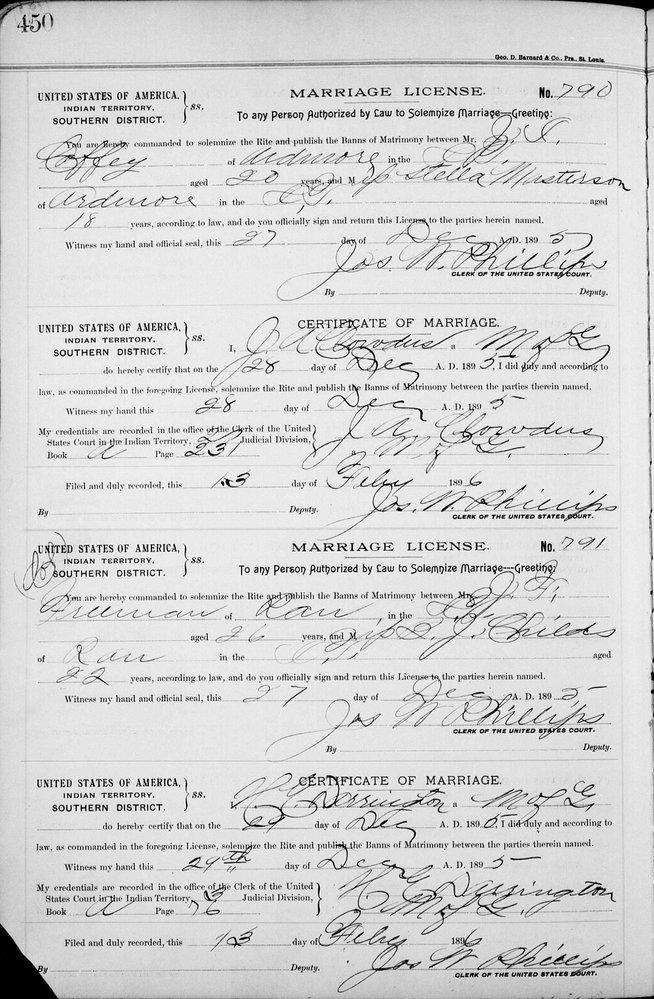 450
Geo. D. Barnard & Co., Prs. St. Louis.
UNITED STATES OF AMERICA,
INDIAN TERRITORY,
SOUTHERN DISTRICT.
ss.
MARRIAGE LICENSE. No. 790
To any Person Authorized by Law to Solemnize Marriage—Greeting:
You are hereby commanded to solemnize the Rite and publish the Banns of Matrimony between Mr. J.
Coffey of Ardmore in the I.T.
aged 20 years, and Miss Stella Masterson
of Ardmore in the I.T. aged
18 years, according to law, and do you officially sign and return this License to the parties herein named.
Witness my hand and official seal, this 27 day of Dec A. D. 1895
Jos. W. Phillips
CLERK OF THE UNITED STATES COURT.
By Deputy.
UNITED STATES OF AMERICA,
INDIAN TERRITORY,
SOUTHERN DISTRICT.
ss.
CERTIFICATE OF MARRIAGE.
I, J A Clowdus a M of G
do hereby certify that on the 28 day of Dec A. D. 1895, I did duly and according to
law, as commanded in the foregoing License, solemnize the Rite and publish the Banns of Matrimony between the parties therein named.
Witness my hand this 28 day of Dec A. D. 1895
My credentials are recorded in the office of the Clerk of the United
States Court in the Indian Territory, Judicial Division,
Book A Page 231
J A Clowdus
M of G.
Filed and duly recorded, this 13 day of Feby 1896
Jos. W. Phillips
By Deputy. CLERK OF THE UNITED STATES COURT.
UNITED STATES OF AMERICA,
INDIAN TERRITORY,
SOUTHERN DISTRICT.
ss.
MARRIAGE LICENSE. No. 791
To any Person Authorized by Law to Solemnize Marriage—Greeting:
You are hereby commanded to solemnize the Rite and publish the Banns of Matrimony between Mr. J. F.
Freeman of Ran, in the I.T.
aged 26 years, and Miss L. J. Childs
of Ran in the I.T. aged
22 years, according to law, and do you officially sign and return this License to the parties herein named.
Witness my hand and official seal, this 27 day of Dec A. D. 1895
Jos W Phillips
CLERK OF THE UNITED STATES COURT.
By Deputy.
UNITED STATES OF AMERICA,
INDIAN TERRITORY,
SOUTHERN DISTRICT.
ss.
CERTIFICATE OF MARRIAGE.
Derrington a M of G
do hereby certify that on the 29 day of Dec A. D. 1895, I did duly and according to
law, as commanded in the foregoing License, solemnize the Rite and publish the Banns of Matrimony between the parties therein named.
Witness my hand this 29th day of Dec A. D. 1895
My credentials are recorded in the office of the Clerk of the United
States Court in the Indian Territory, 3 Judicial Division,
Book A Page 76
Derrington
M of G.
Filed and duly recorded, this 13 day of Feby 1896
Jos W Phillips
By Deputy. CLERK OF THE UNITED STATES COURT.